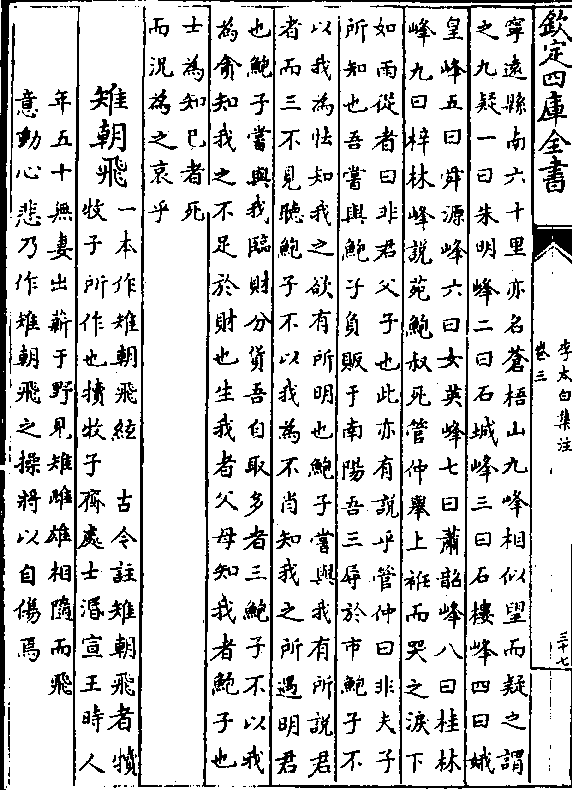 欽定四庫全書
李太白集注
卷三
三十七
寧遠縣南六十里亦名蒼梧山九峰相似望而疑之謂
之九疑一曰朱明峰二曰石城峰三曰石樓峰四曰娥
皇峰五曰舜源峰六曰女英峰七曰蕭韶峰八曰桂林
峰九曰梓林峰說苑鮑叔死管仲舉上袵而哭之淚下
如雨從者曰非君父子也此亦有說乎管仲曰非夫子
所知也吾嘗與鮑子負販于南陽吾三辱於市鮑子不
以我為怯知我之欲有所明也鮑子嘗與我有所說君
者而三不見聽鮑子不以我為不肖知我之所遇明君
也鮑子嘗與我臨財分貨吾自取多者三鮑子不以我
為貪知我之不足於財也生我者父母知我者鮑子也
士為知已者死
而況為之哀乎
雉朝飛
一本作雉朝飛絃 古今註雉朝飛者犢
牧子所作也犢牧子齊處士湣宣王時人
年五十無妻出薪于野見雉雌雄相隨而飛
意動心悲乃作雉朝飛之操將以自傷焉